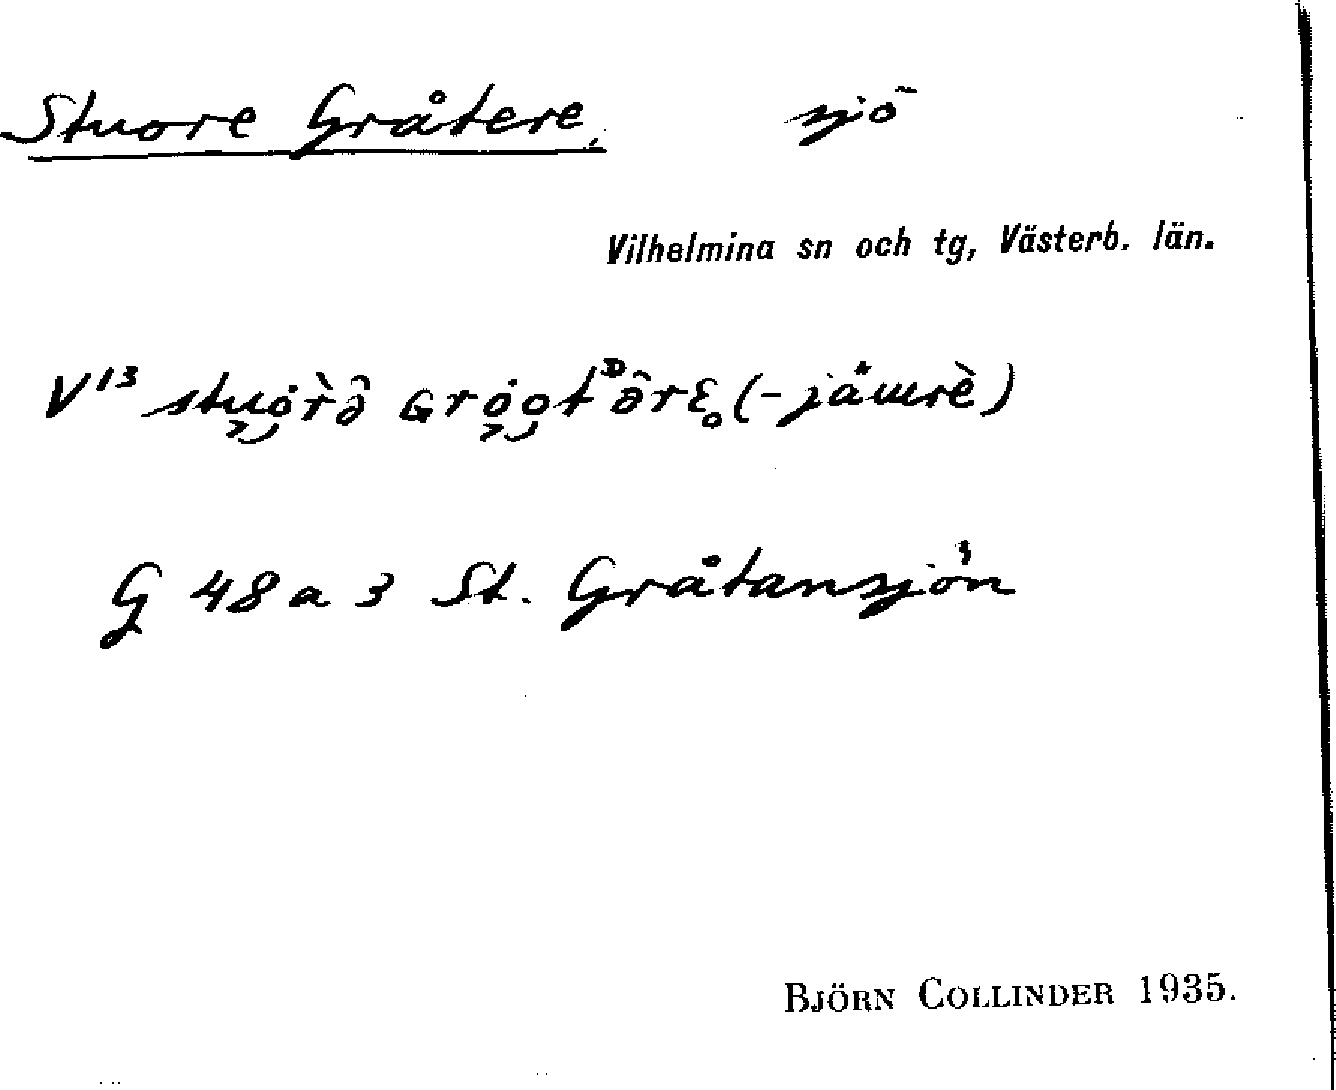 Stuore Gråtere, sjö
Vilhelmina sn och tg, Västerb. län.
V¹³ (-jåwrè)
G 48 a 3 St. Gråtansjön
BJÖRN COLLINDER 1935.